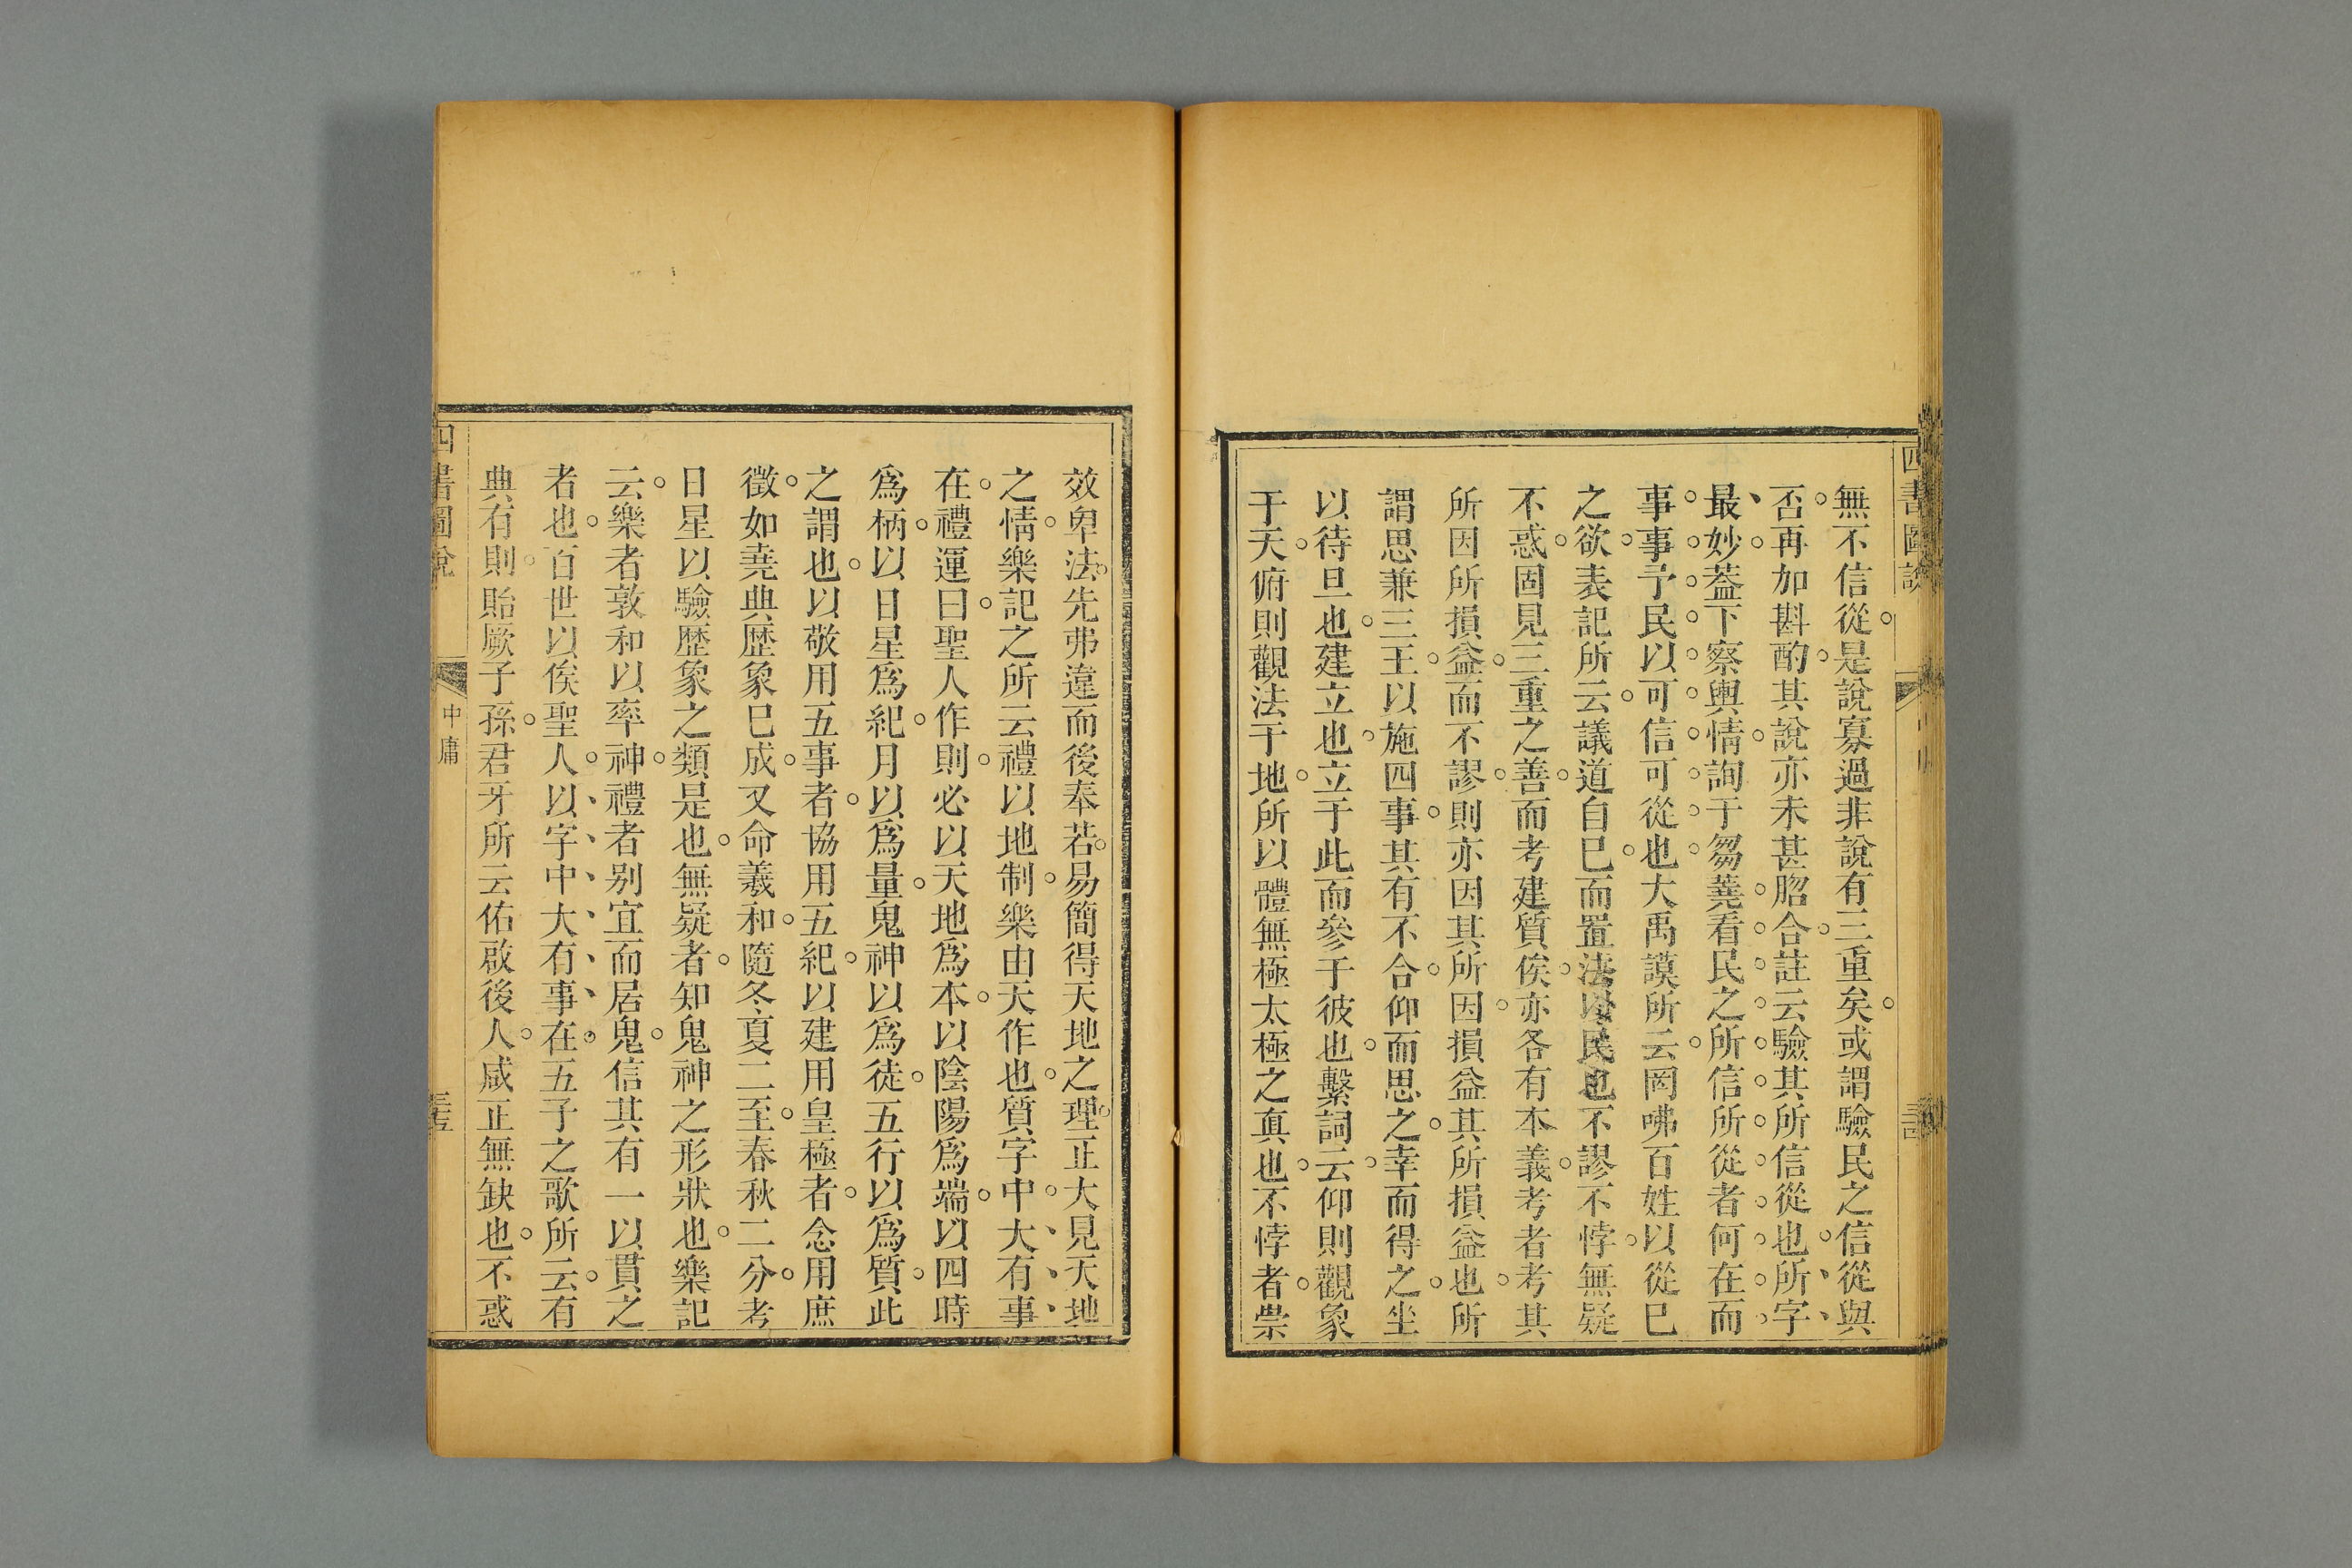 四書圖說
無不信從是說寡過非說有三重矣或謂驗民之信從與
否再加斟酌其說亦未甚脗合註云驗其所信從也所字
最妙葢下察輿情詢于芻蕘看民之所信所從者何在而
事事予民以可信可從也大禹謨所云罔咈百姓以從已
之欲表記所云議道自已而置法以民也不謬不悖無疑
不惑固見三重之善而考建質俟亦各有本義考者考其
所因所損益而不謬則亦因其所因損益其所損益也所
謂思兼三王以施四事其有不合仰而思之幸而得之坐
以待旦也建立也立于此而參于彼也繫詞云仰則觀象
于天俯則觀法于地所以體無極太極之眞也不悖者崇
效卑法先弗違而後奉若易簡得天地之理正大見天地
之情樂記之所云禮以地制樂由天作也質字中大有事
在禮運曰聖人作則必以天地爲本以陰陽爲端以四時
爲柄以日星爲紀月以爲量鬼神以爲徒五行以爲質此
之謂也以敬用五事者協用五紀以建用皇極者念用庶
徵如堯典歷象已成又命羲和隨冬夏二至春秋二分考
日星以驗歷象之類是也無疑者知鬼神之形狀也樂記
云樂者敦和以率神禮者别宜而居鬼信其有一以貫之
者也百世以俟聖人以字中大有事在五子之歌所云有
典有則貽厥子孫君牙所云佑啟後人咸正無缺也不惑
四書圖說
中庸